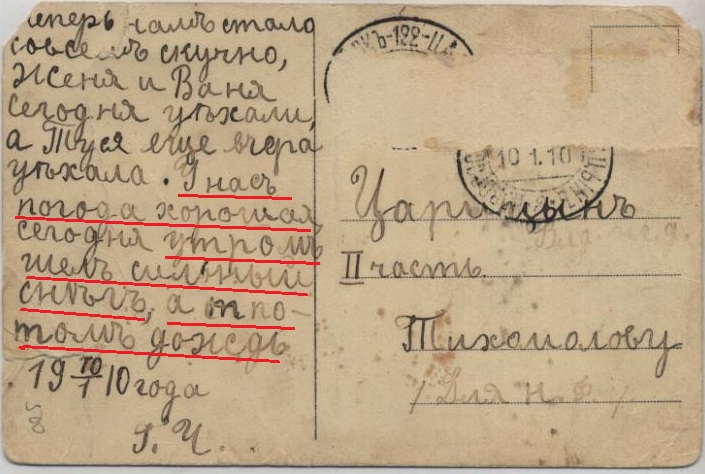 теперь намъ стало
совсемъ скучно,
Женя и Ваня
сегодня уѣхали,
а Туся еще вчера
уѣхала. У насъ
погода хорошая
сегодня утромъ
шелъ сильный
снѣгъ, а т по-
томъ дождь
19 10/1 10 года
10 1.10
Царицынъ
II часть
Тихомолову
/ Для Н. Ф. /